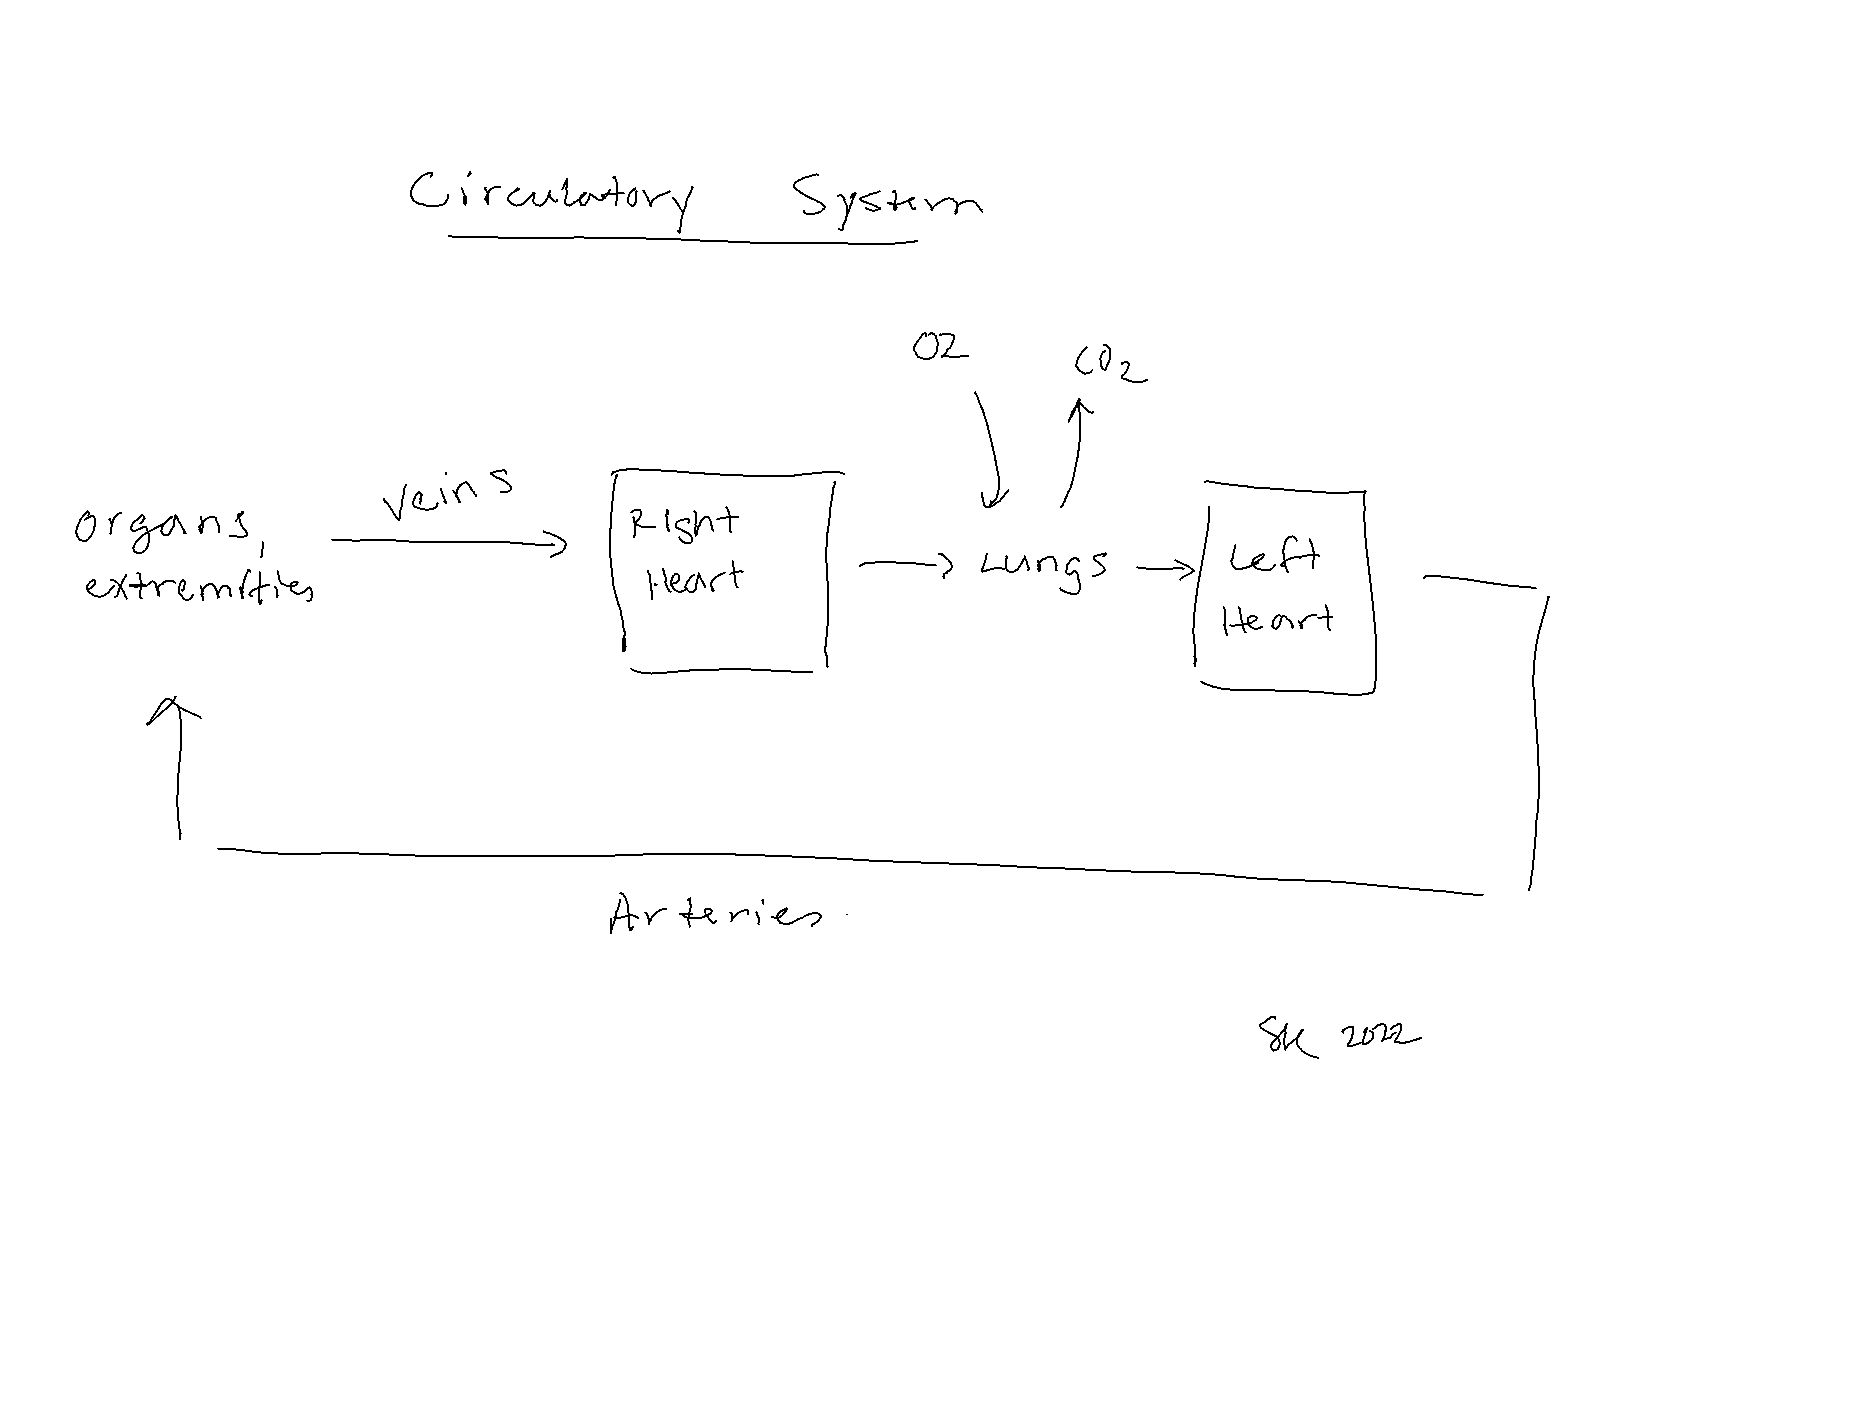 Circulatory System
O2
CO2
Veins
organs,
extremities
Right
Heart
Lungs
Left
Heart
Arteries
SK 2022